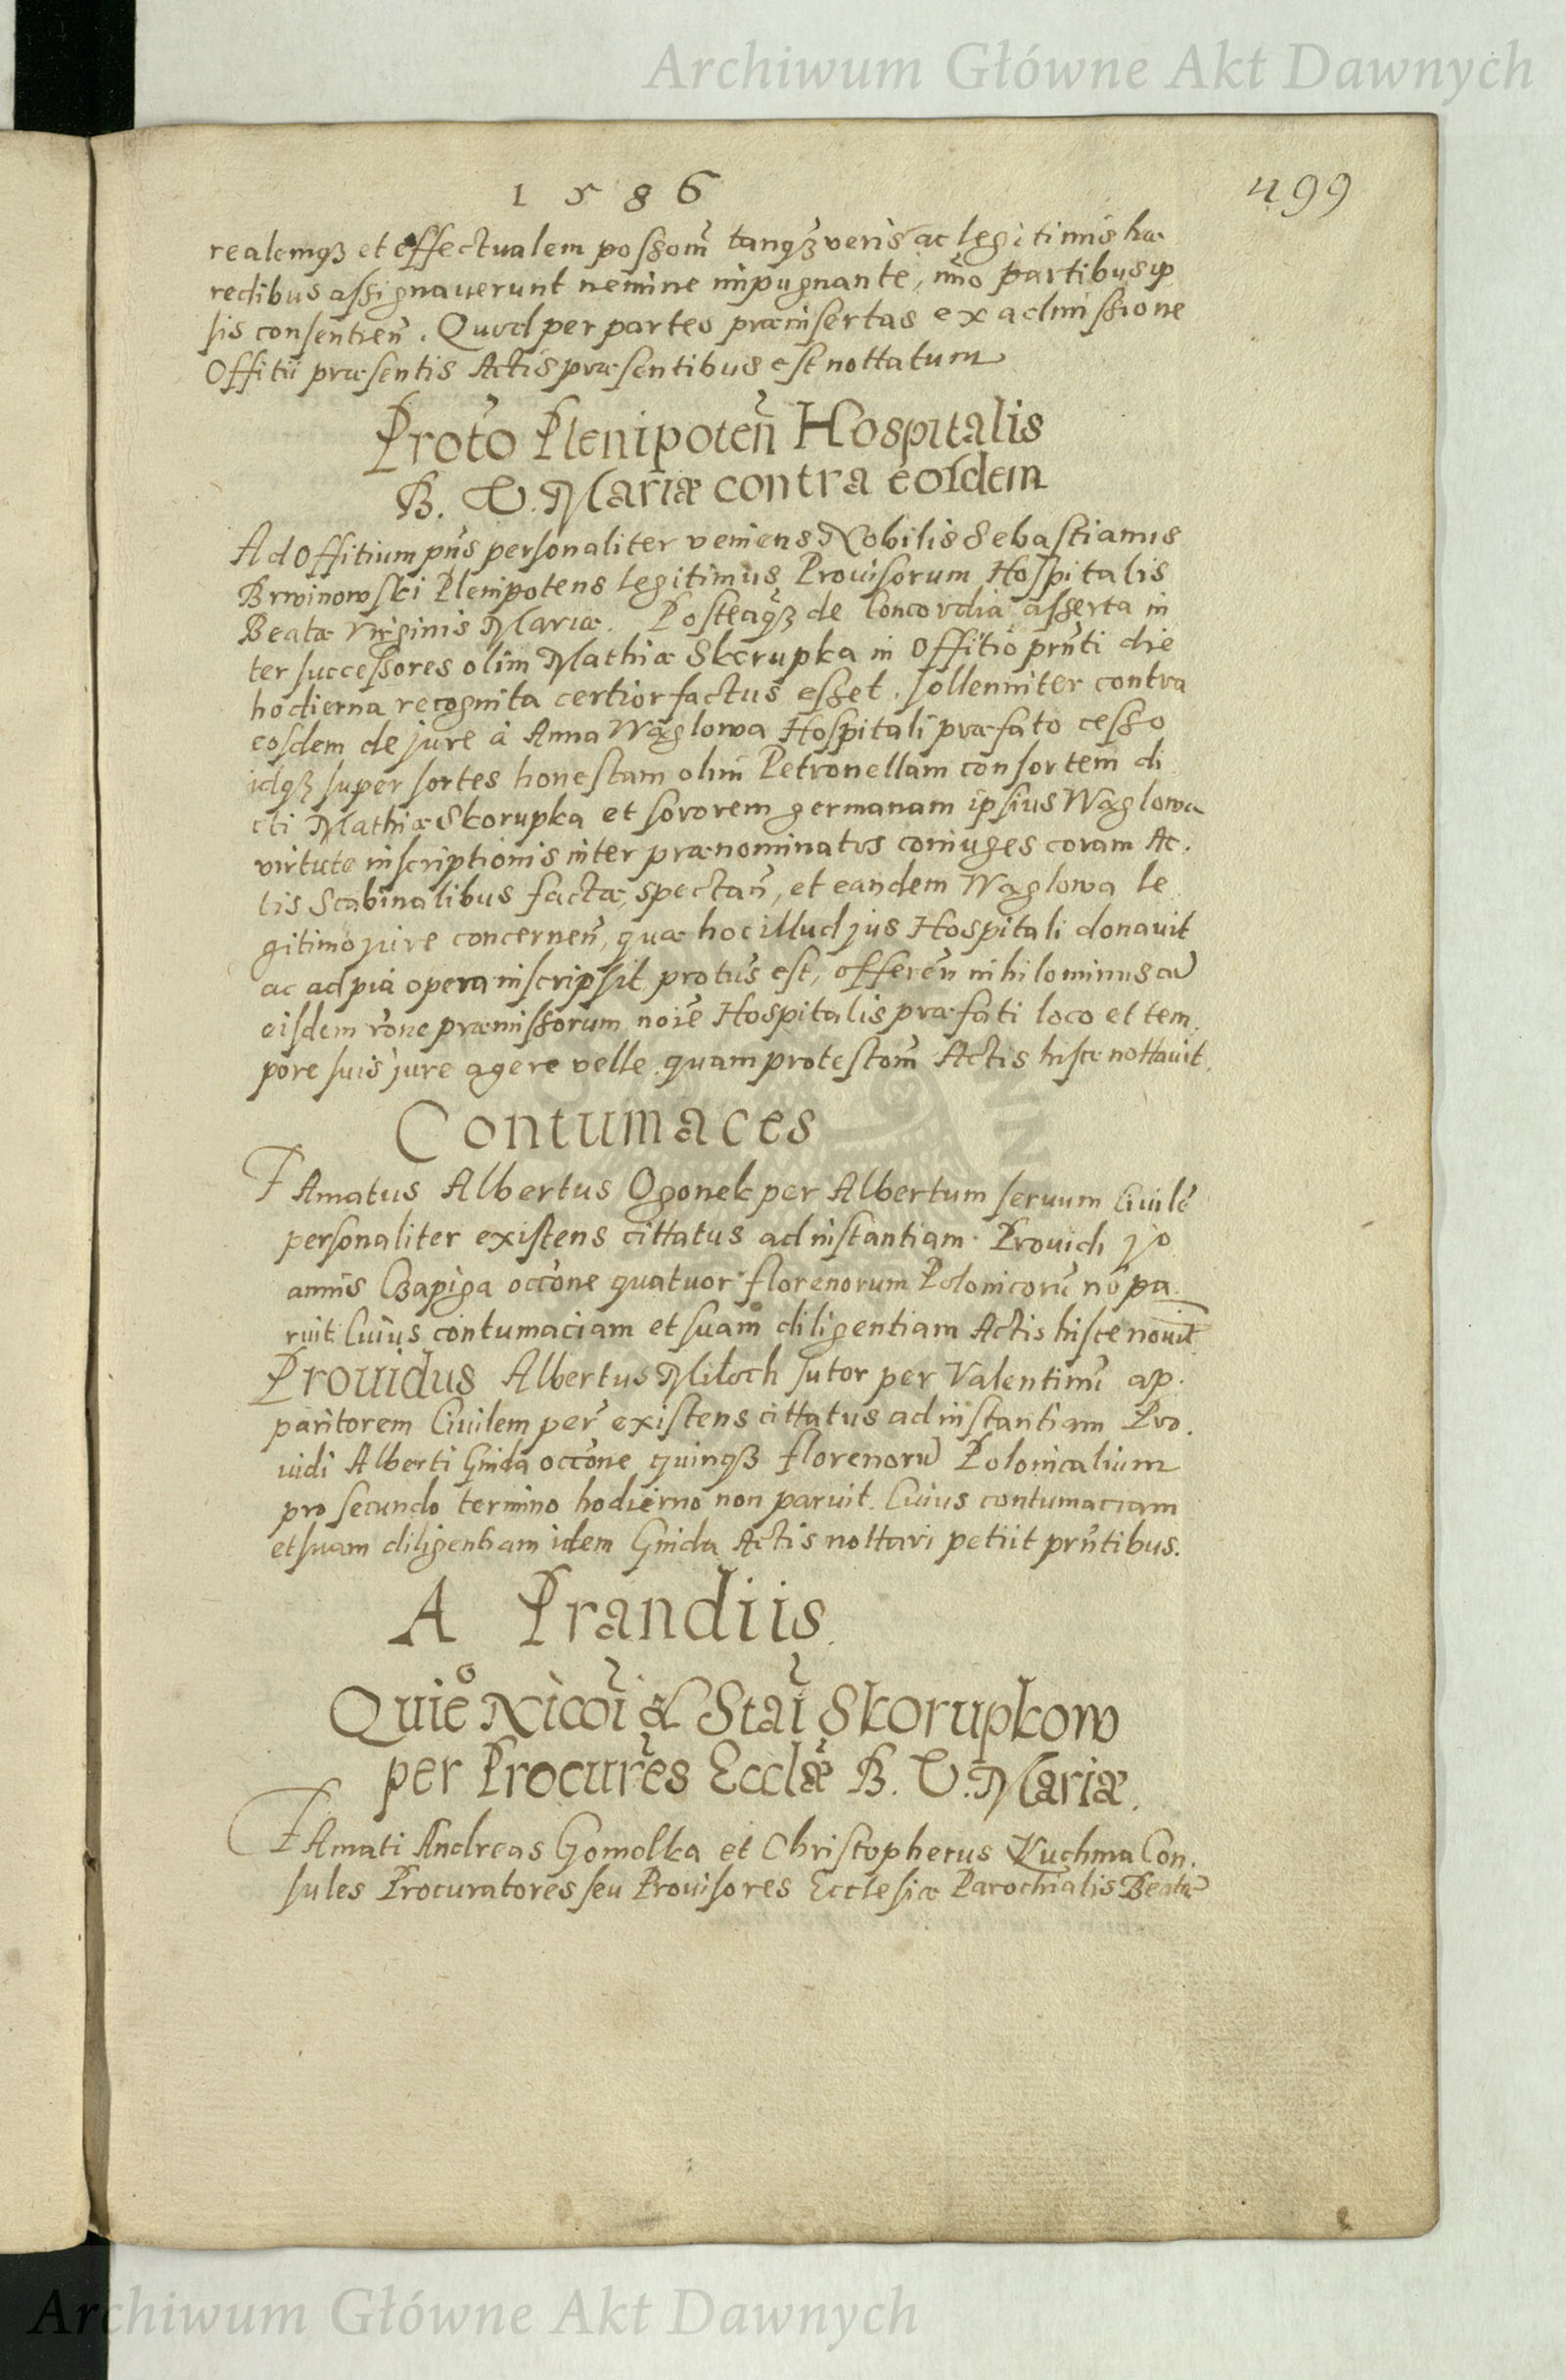 Archiwum Główne Akt Dawnych
1586
499
realemqȝ et effectualem possom̃ tanqȝ veris ac legitimis hæ
redibus assignauerunt nemine impugnante, im̃o partibus ip
sis consentien̄. Quod per partes præinsertas ex admissione
Offitii præsentis Actis præsentibus est nottatum
Proto Plenipoten̄ Hospitalis
B. V. Mariæ contra eosdem
Ad Offitium pn̄s personaliter veniens Nobilis Sebastianus
Brwinowski Plenipotens legitimus Prouisorum Hospitalis
Beatæ Virginis Mariæ. Posteaqȝ de Concordia asserta in
ter successores olim Mathiæ Skorupka in Offitio prn̄ti die
hodierna recognita certior factus esset. sollenniter contra
eosdem de jure à Anna Wąglowa Hospitali præfato cesso
idqȝ super sortes honestam olim Petronellam consortem di
cti Mathiæ Skorupka et sororem germanam ipsius Wąglowa
virtute inscriptionis inter prænominatos coniuges coram Ac.
tis Scabinalibus factæ, spectan̄, et eandem Wąglowa le
gitimo jure concernen̄, quæ hoc illud jus Hospitali donauit
ac ad pia opera inscripsit protūs est, offeren̄ nihilominus cū
eisdem rōne præmissorum noīe Hospitalis præfati loco et tem
pore suis jure agere velle. quam protestom̃ Actis hisce nottauit.
Contumaces
FAmatus Albertus Ogonek per Albertum seruum Ciuilē
personaliter existens cittatus ad instantiam Prouidi Jo
annis Czapiga occōne quatuor florenorum Polonicorū nō pa
ruit Cuius contumaciam et suam diligentiam Actis hisce nouit
Prouidus Albertus Miloch sutor per Valentinū ap.
paritorem Ciuilem per̃ existens cittatus ad instantiam Pro.
uidi Alberti Gnida occōne quinqȝ florenorū Polonicalium
pro secundo termino hodierno non paruit. Cuius contumaciam
et suam diligentiam idem Gnida Actis nottari petiit prn̄tibus.
A Prandiis.
Quie° Nicōi & Staī Skorupkow
per Procurēs Ecclæ̃ B. V. Mariæ.
FAmati Andreas Gomolka et Christopherus Kuchma Con.
sules Procuratores seu Prouisores Ecclesiæ Parochialis Beatæ
Archiwum Główne Akt Dawnych